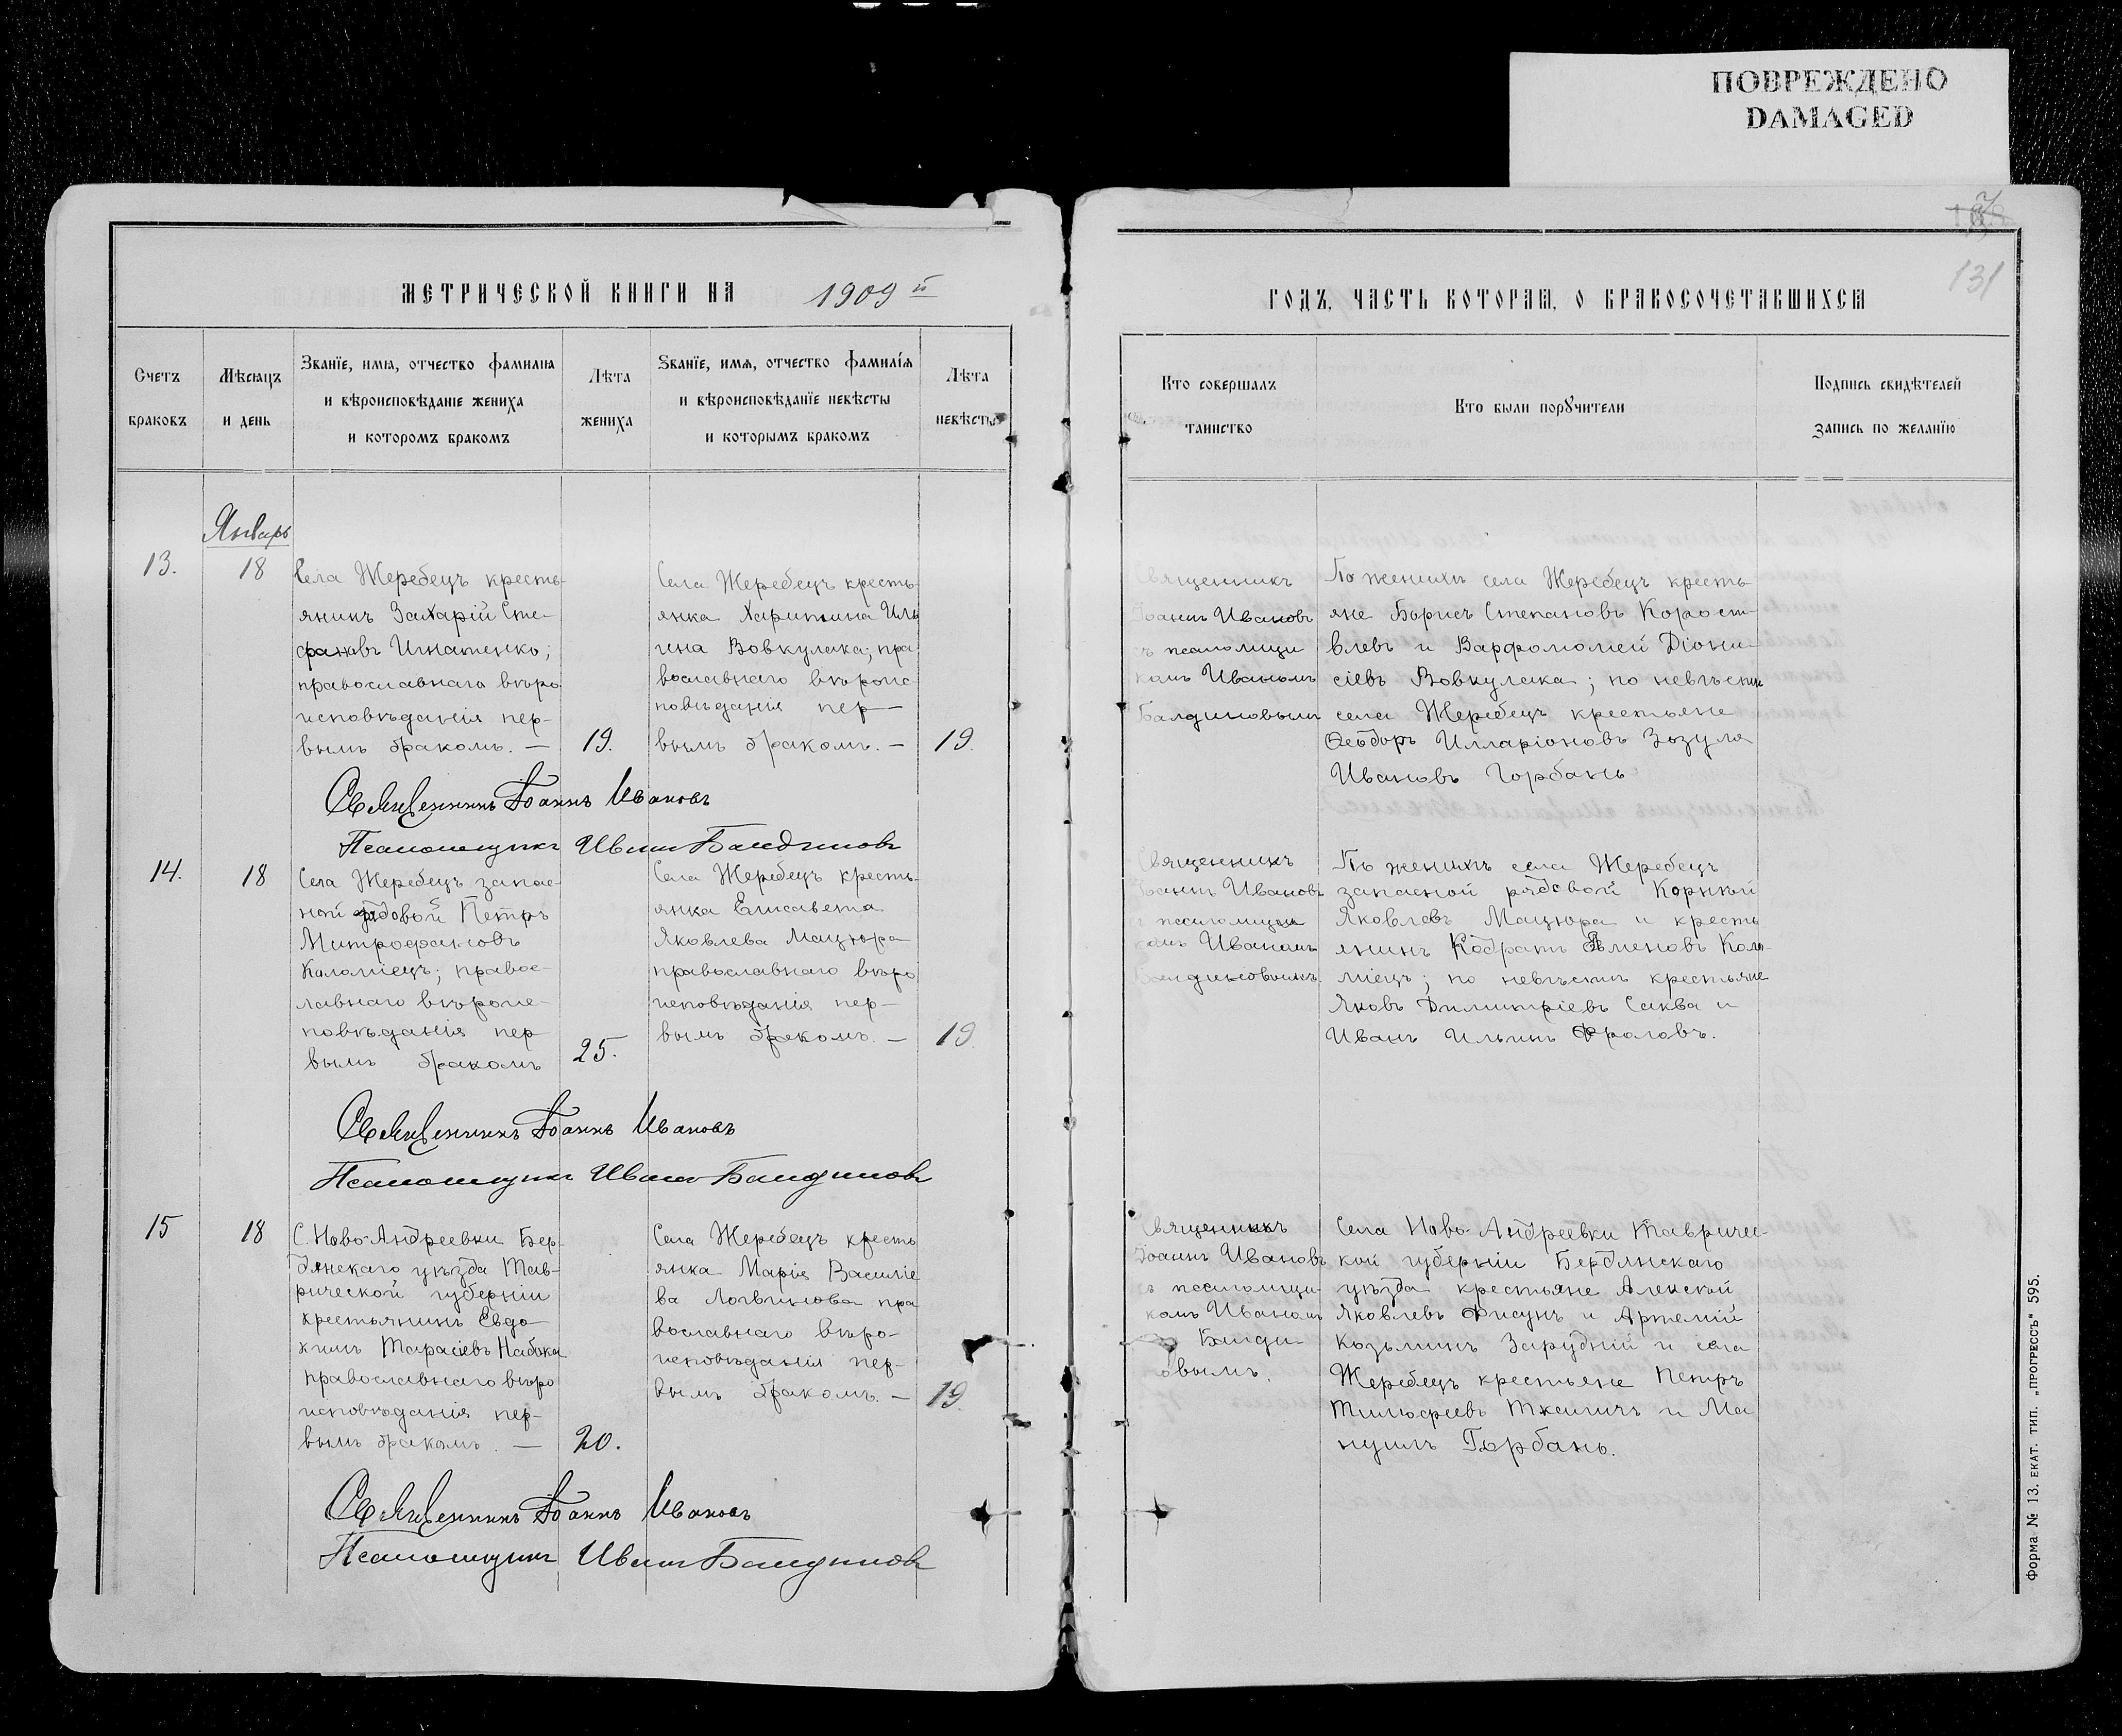 ПОВРЕЖДЕНО
DAMAGED
131
МЕТРИЧЕСКОЙ КНИГИ НА 1909 й
ГОДЪ, ЧАСТЬ КОТОРАЯ, О БРАКОСОЧЕТАВШИХСЯ
Счетъ
браковъ
Мѣсяцъ
и день
Званїе, имя, отчество фамилія
и вѣроисповѣданіе жениха
и которомъ бракомъ
Лѣта
жениха
Ѕванїе, имя, отчество фамилїя
и вѣроисповѣданїе невѣсты
и которымъ бракомъ
Лѣта
невѣсты
Кто совершалъ
таинство
Кто были порꙋчители
Подпись свидѣтелей
запись по желанїю
Январь
13.
18
Села Жеребецъ кресть-
янинъ Захарій Сте-
фановъ Игнатенко;
православнаго вѣро
исповѣданія пер-
вымъ бракомъ. —
19.
Села Жеребецъ кресть-
янка Харитина Иль
ина Вовкулака; пра
вославнаго вѣроис-
повѣданія пер—
вымъ бракомъ. —
19.
Священникъ
Іоаннъ Ивановъ
съ псаломщи
комъ Иваномъ
Балдиновымъ
По женихѣ села Жеребецъ кресть-
яне Борисъ Степановъ Корост-
влевъ и Варфоломей Діони-
сіевъ Вовкулака; по невѣстѣ
села Жеребецъ крестьяне
Ѳеодоръ Илларіоновъ Зозуля
Ивановъ Горбань
Священникъ Іоаннъ Ивановъ
Псаломщикъ Иванъ Балдиновъ
14.
18
Села Жеребецъ запас-
ной рядовой Петръ
Митрофановъ
Коломіецъ; правос-
лавнаго вѣроис-
повѣданія пер
вымъ бракомъ
25.
Села Жеребецъ кресть-
янка Елисавета
Яковлева Мацюра
православнаго вѣро
исповѣданія пер-
вымъ бракомъ. —
19.
Священникъ
Іоаннъ Ивановъ
съ псаломщи
комъ Иваномъ
Балдиновымъ.
По женихѣ села Жеребецъ
запасной рядовой Корнилій
Яковлевъ Мацюра и кресть
янинъ Кодратъ Коло-
міецъ; по невѣстѣ крестьяне
Яковъ Димитріевъ Саква и
Иванъ Ильинъ Фроловъ.
Священникъ Іоаннъ Ивановъ
Псаломщикъ Иванъ Балдиновъ
15
18
С. Ново-Андреевки Бер-
дянскаго уѣзда Тав-
рической губерніи
крестьянинъ Евдо-
кимъ Тарасіевъ Набока
православнаго вѣро
исповѣданія пер-
вымъ бракомъ. —
20.
Села Жеребецъ кресть
янка Марія Василіе
ва Логвинова пра
вославнаго вѣро-
исповѣданія пер-
вымъ бракомъ. —
19.
Священникъ
Іоаннъ Ивановъ
съ псаломщи-
комъ Иваномъ
Балди
овымъ.
Села Ново-Андреевки Тавричес-
кой губерніи Бердянскаго
уѣзда крестьяне Алексій
Яковлевъ Фисунъ и Артемій
Козьминъ Зарудній и села
Жеребецъ крестьяне Петръ
Тимофеевъ Ткачичъ и Ма
нуилъ Горбань.
Священникъ Іоаннъ Ивановъ
Псаломщикъ Иванъ Балдиновъ
Форма № 13. ЕКАТ. ТИП. „ПРОГРЕССЪ" 595.